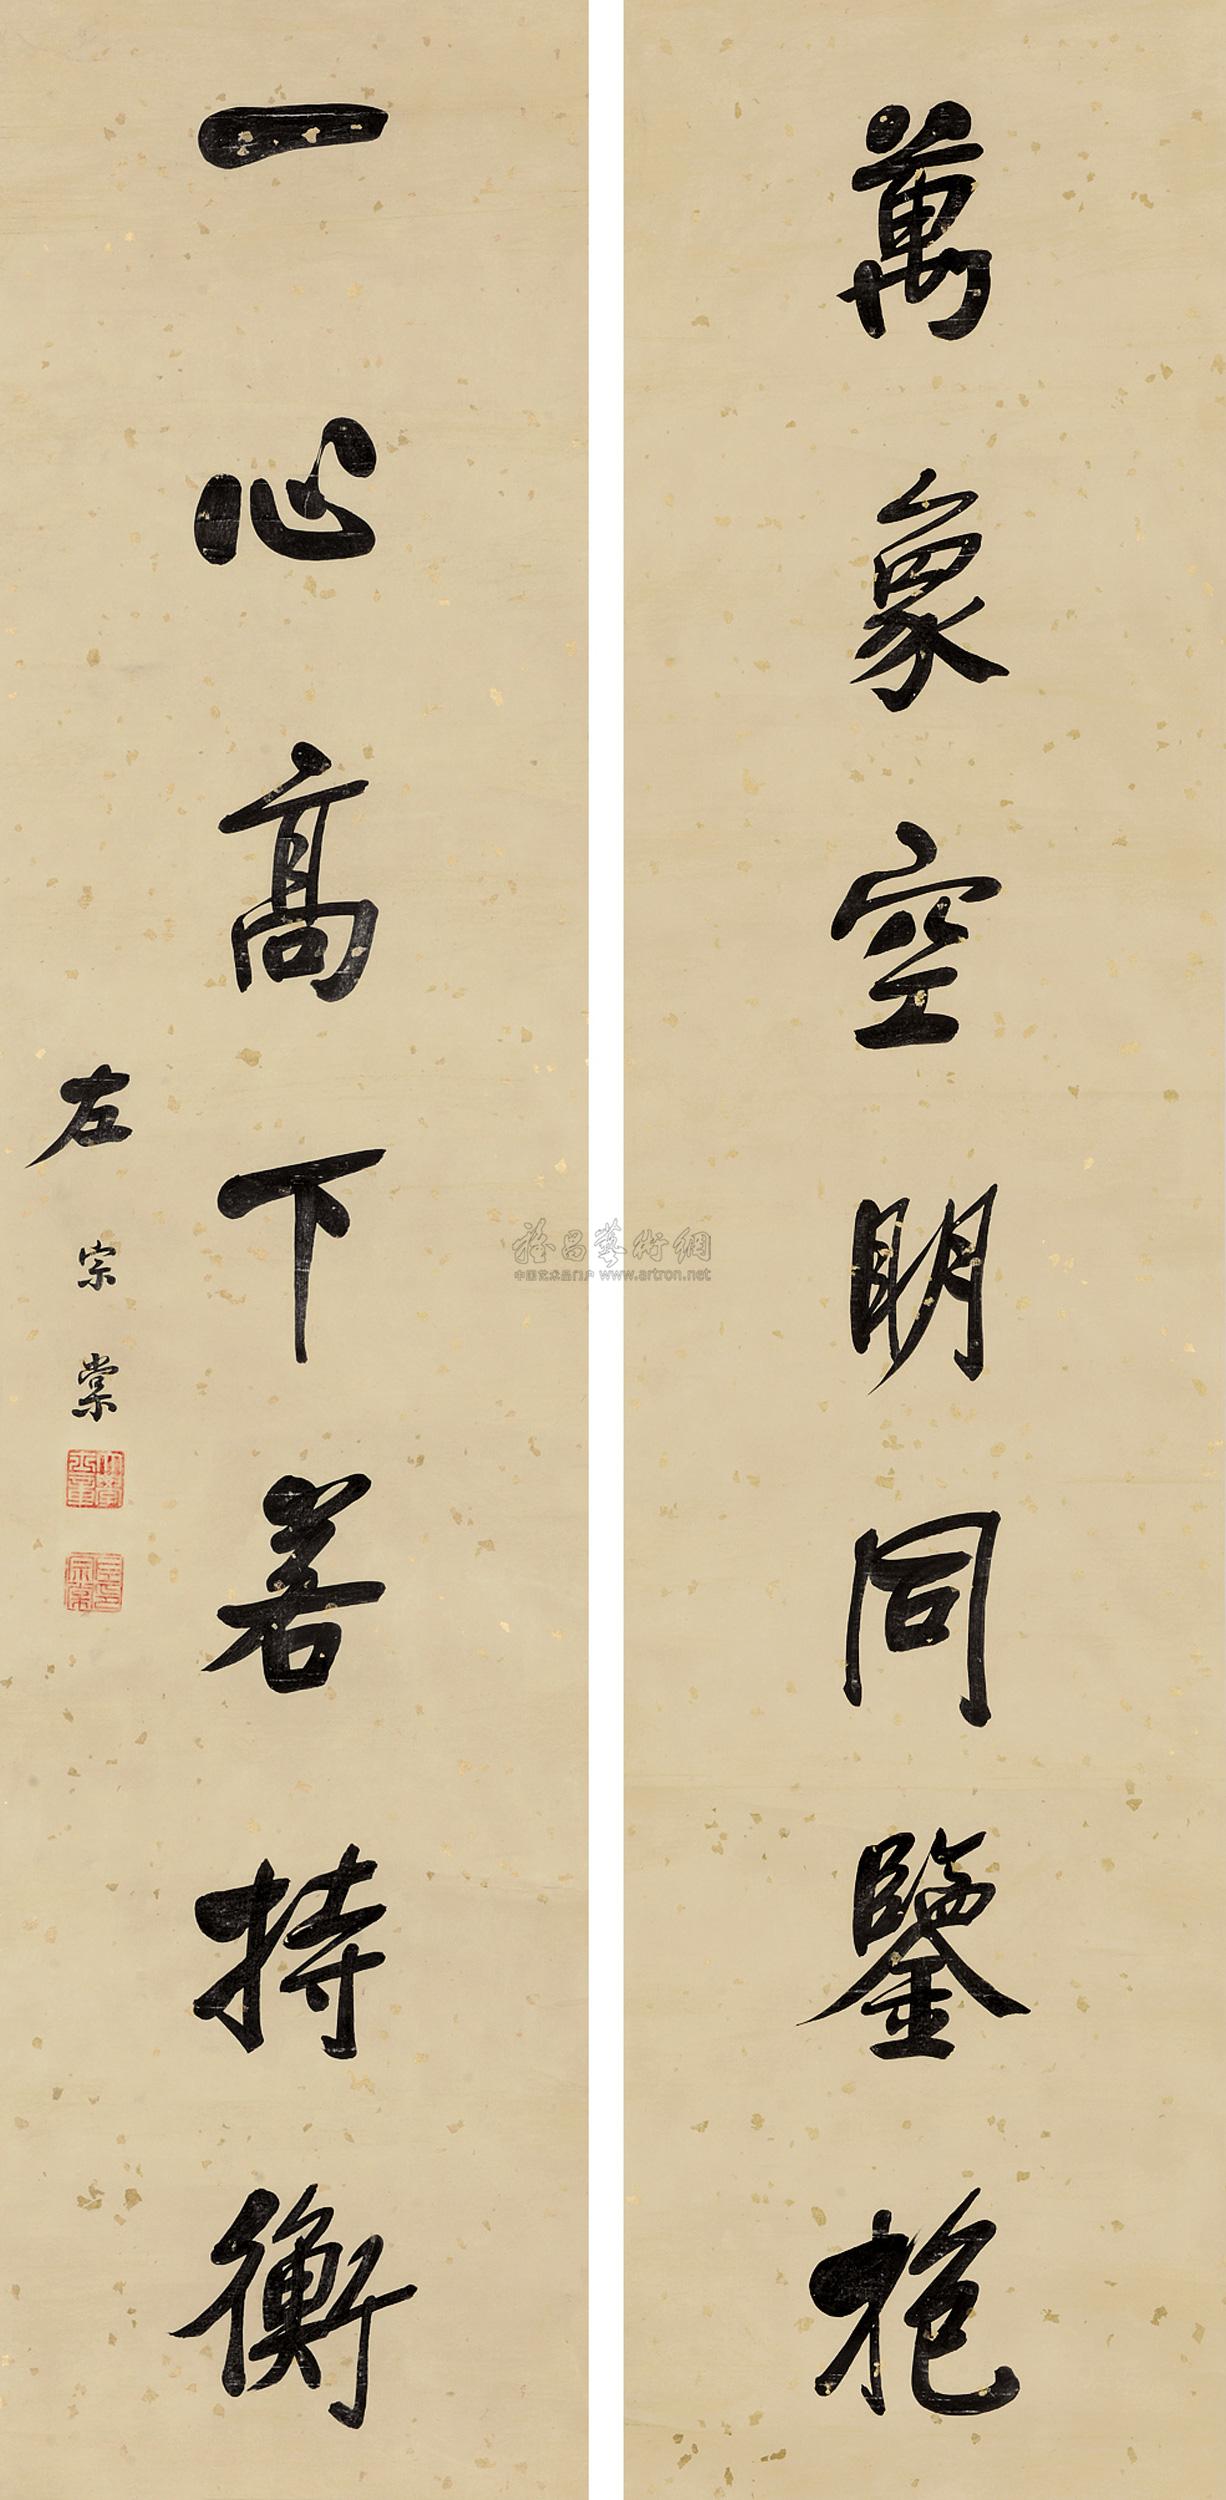 萬象空明同鑒抱
一心高下若持衡
左宗棠
雅昌藝術網
中国艺术品门户 www.artron.net